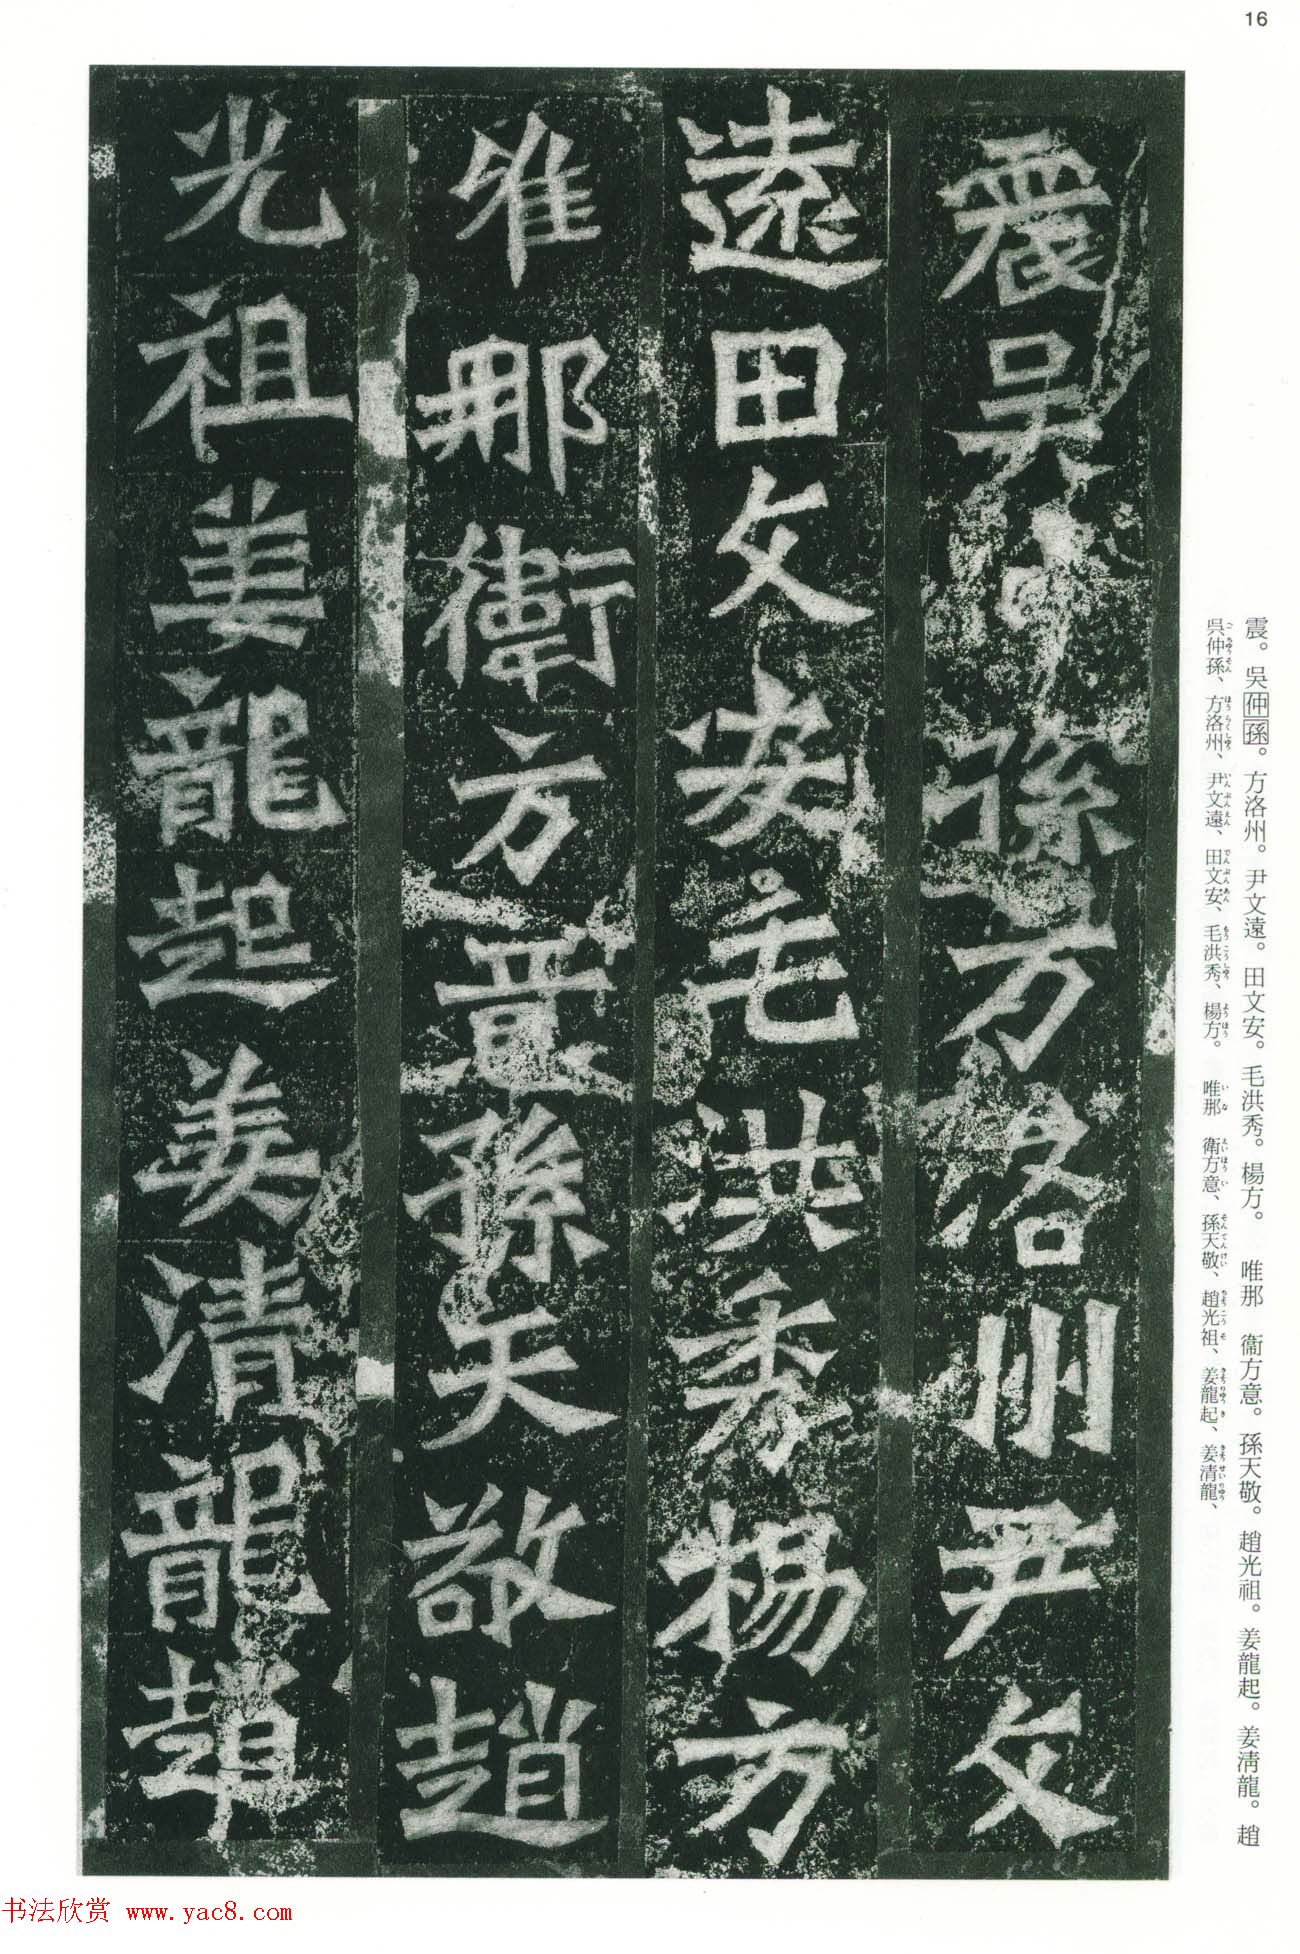 16
震吳仲孫方洛州尹文
遠田文安毛洪秀楊方
唯那衛方意孫天敬趙
光祖姜龍起姜清龍趙
震。吳仲孫。方洛州。尹文遠。田文安。毛洪秀。楊方。　唯那　衞方意。孫天敬。趙光祖。姜龍起。姜清龍。趙
呉仲孫、方洛州、尹文遠、田文安、毛洪秀、楊方。　唯那　衛方意、孫天敬、趙光祖、姜龍起、姜清龍、
书法欣赏 www.yac8.com